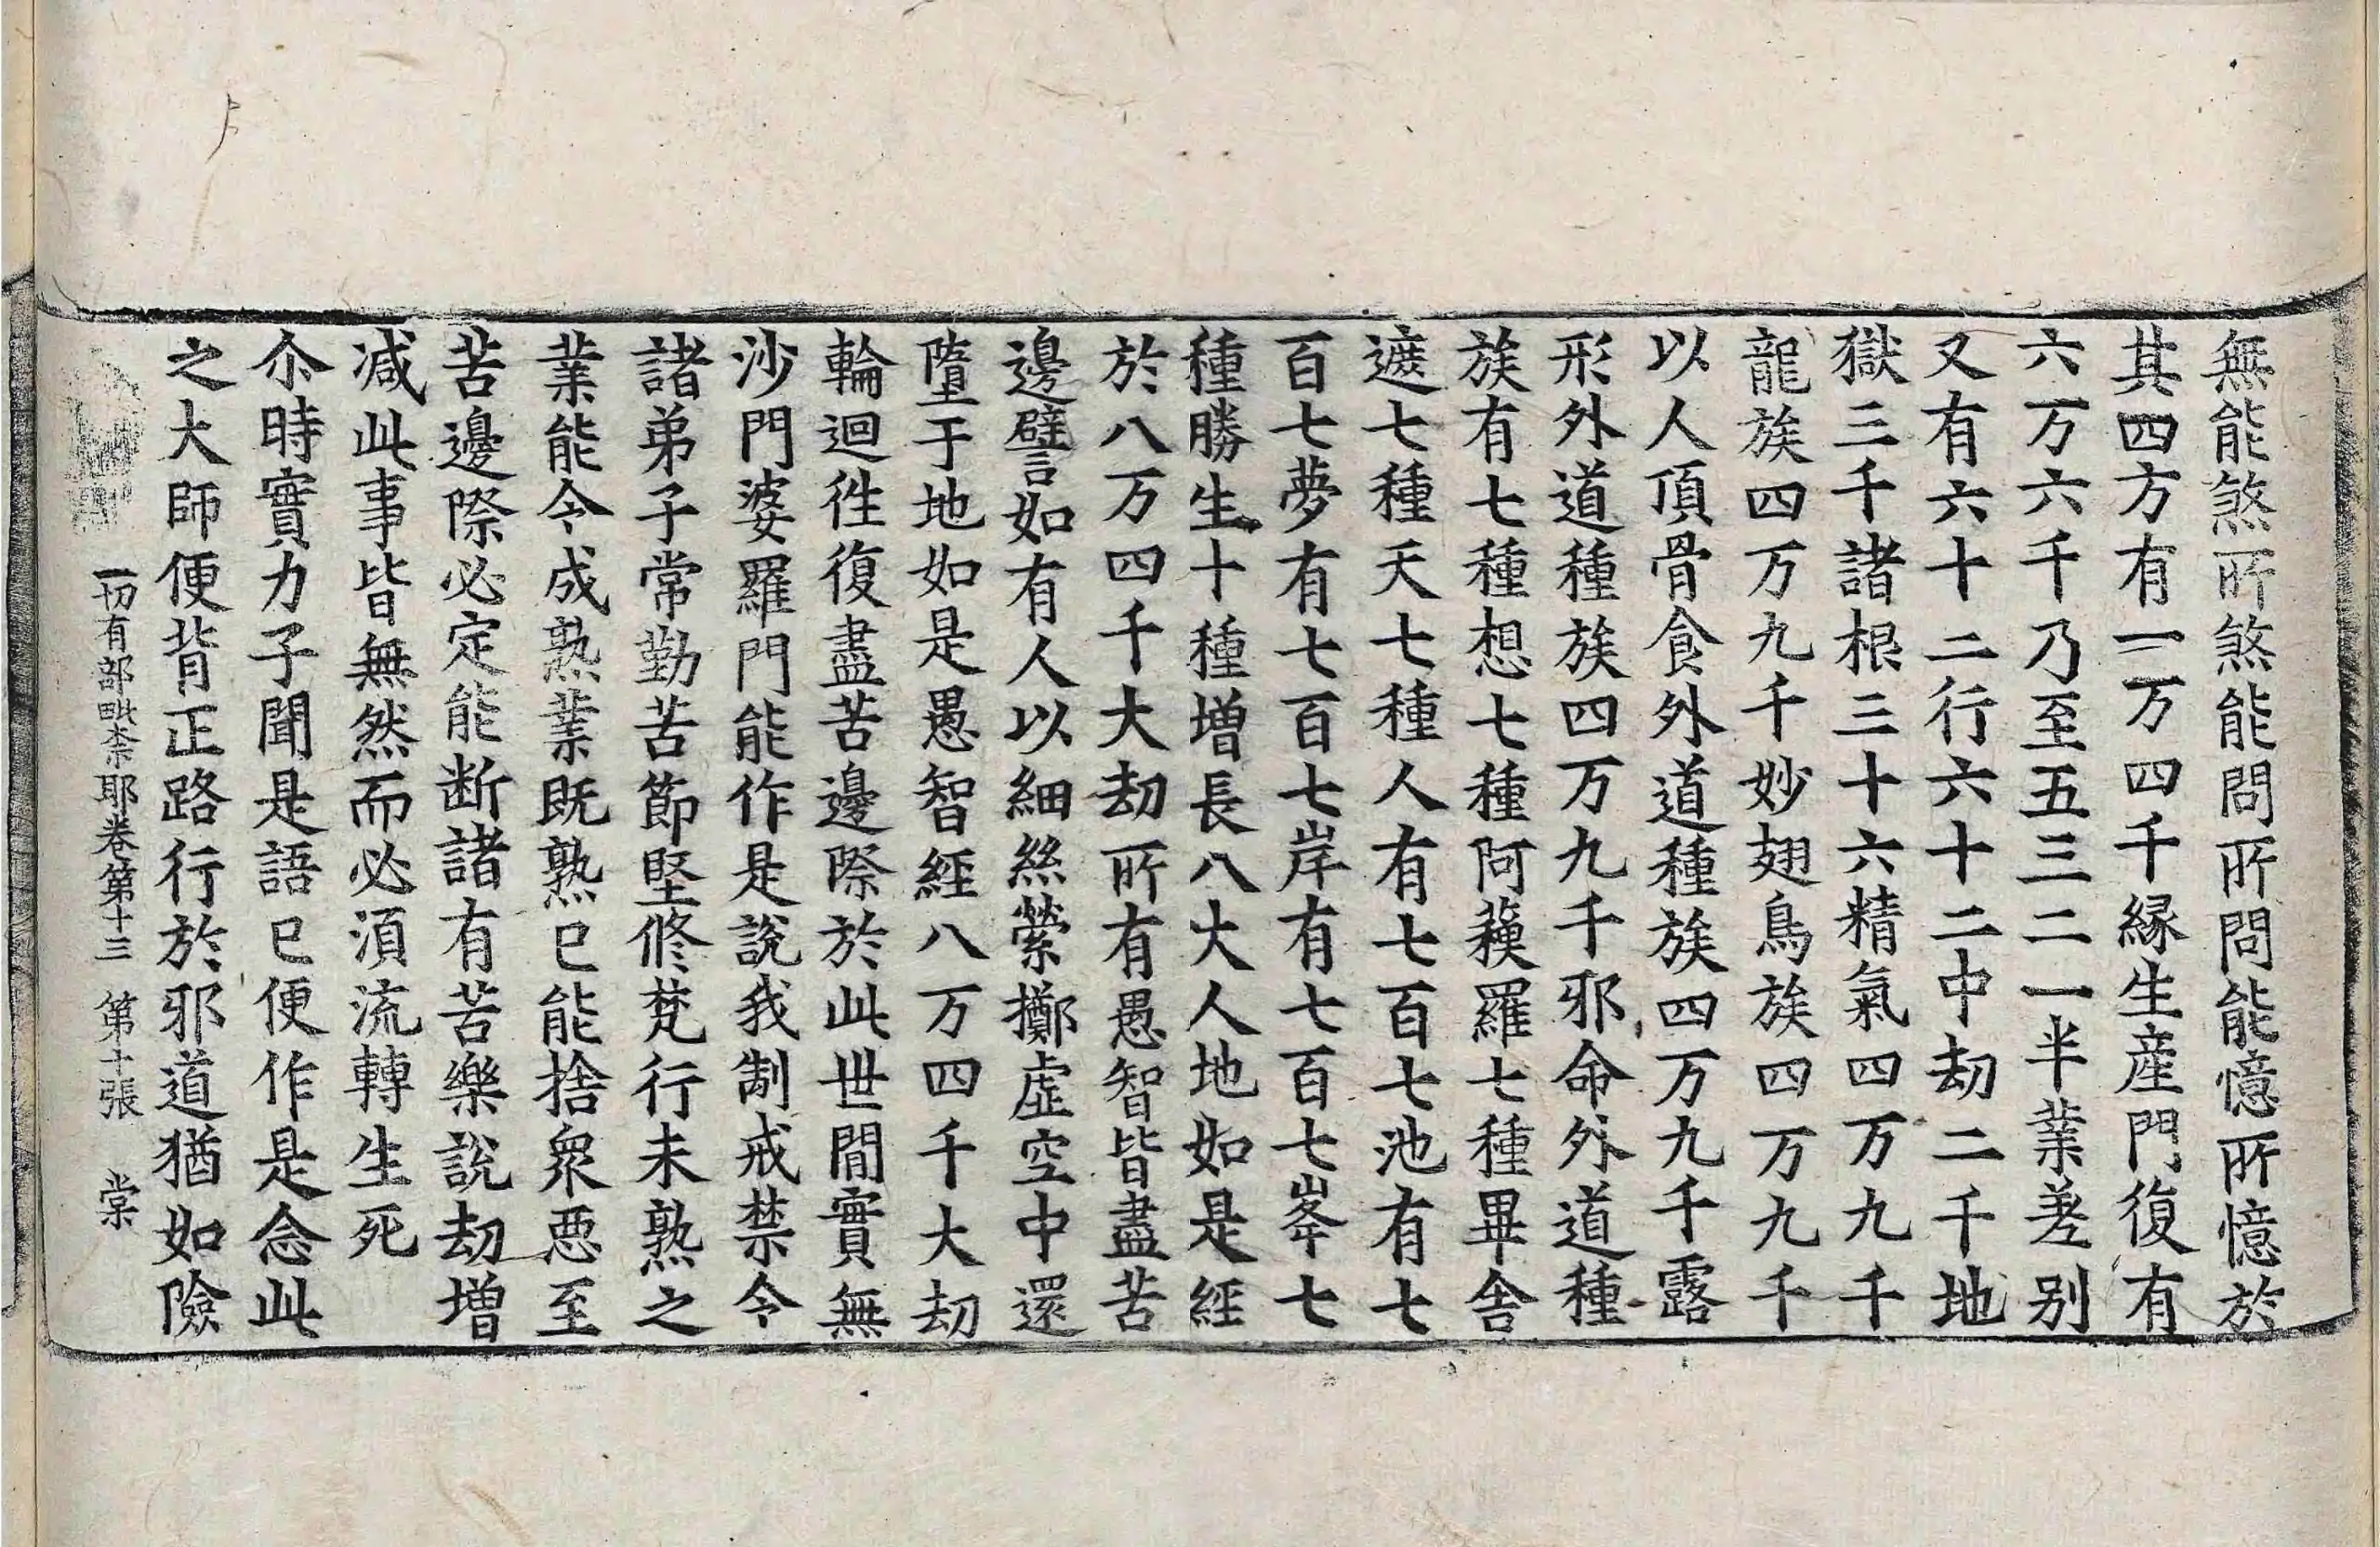 無能煞所煞能問所問能憶所憶於
其四方有一万四千縁生産門復有
六万六千乃至五三二一半業差别
又有六十二行六十二中劫二千地
獄三千諸根三十六精氣四万九千
龍族四万九千妙翅鳥族四万九千
以人頂骨食外道種族四万九千露
形外道種族四万九千邪命外道種
族有七種想七種阿蘓羅七種畢舍
遮七種天七種人有七百七池有七
百七夢有七百七岸有七百七峯七
種勝生十種增長八大人地如是經
於八万四千大劫所有愚智皆盡苦
邊譬如有人以細絲縈擲虛空中還
墮于地如是愚智經八万四千大劫
輪迴徃復盡苦邊際於此世間實無
沙門婆羅門能作是說我制戒禁令
諸弟子常勤苦節堅修梵行未熟之
業能令成熟業既熟已能捨衆悪至
苦邊際必定能断諸有苦樂說劫增
减此事皆無然而必須流轉生死
尒時實力子聞是語已便作是念此
之大師便背正路行於邪道猶如險
一切有部毗奈耶卷第十三 第十張 棠